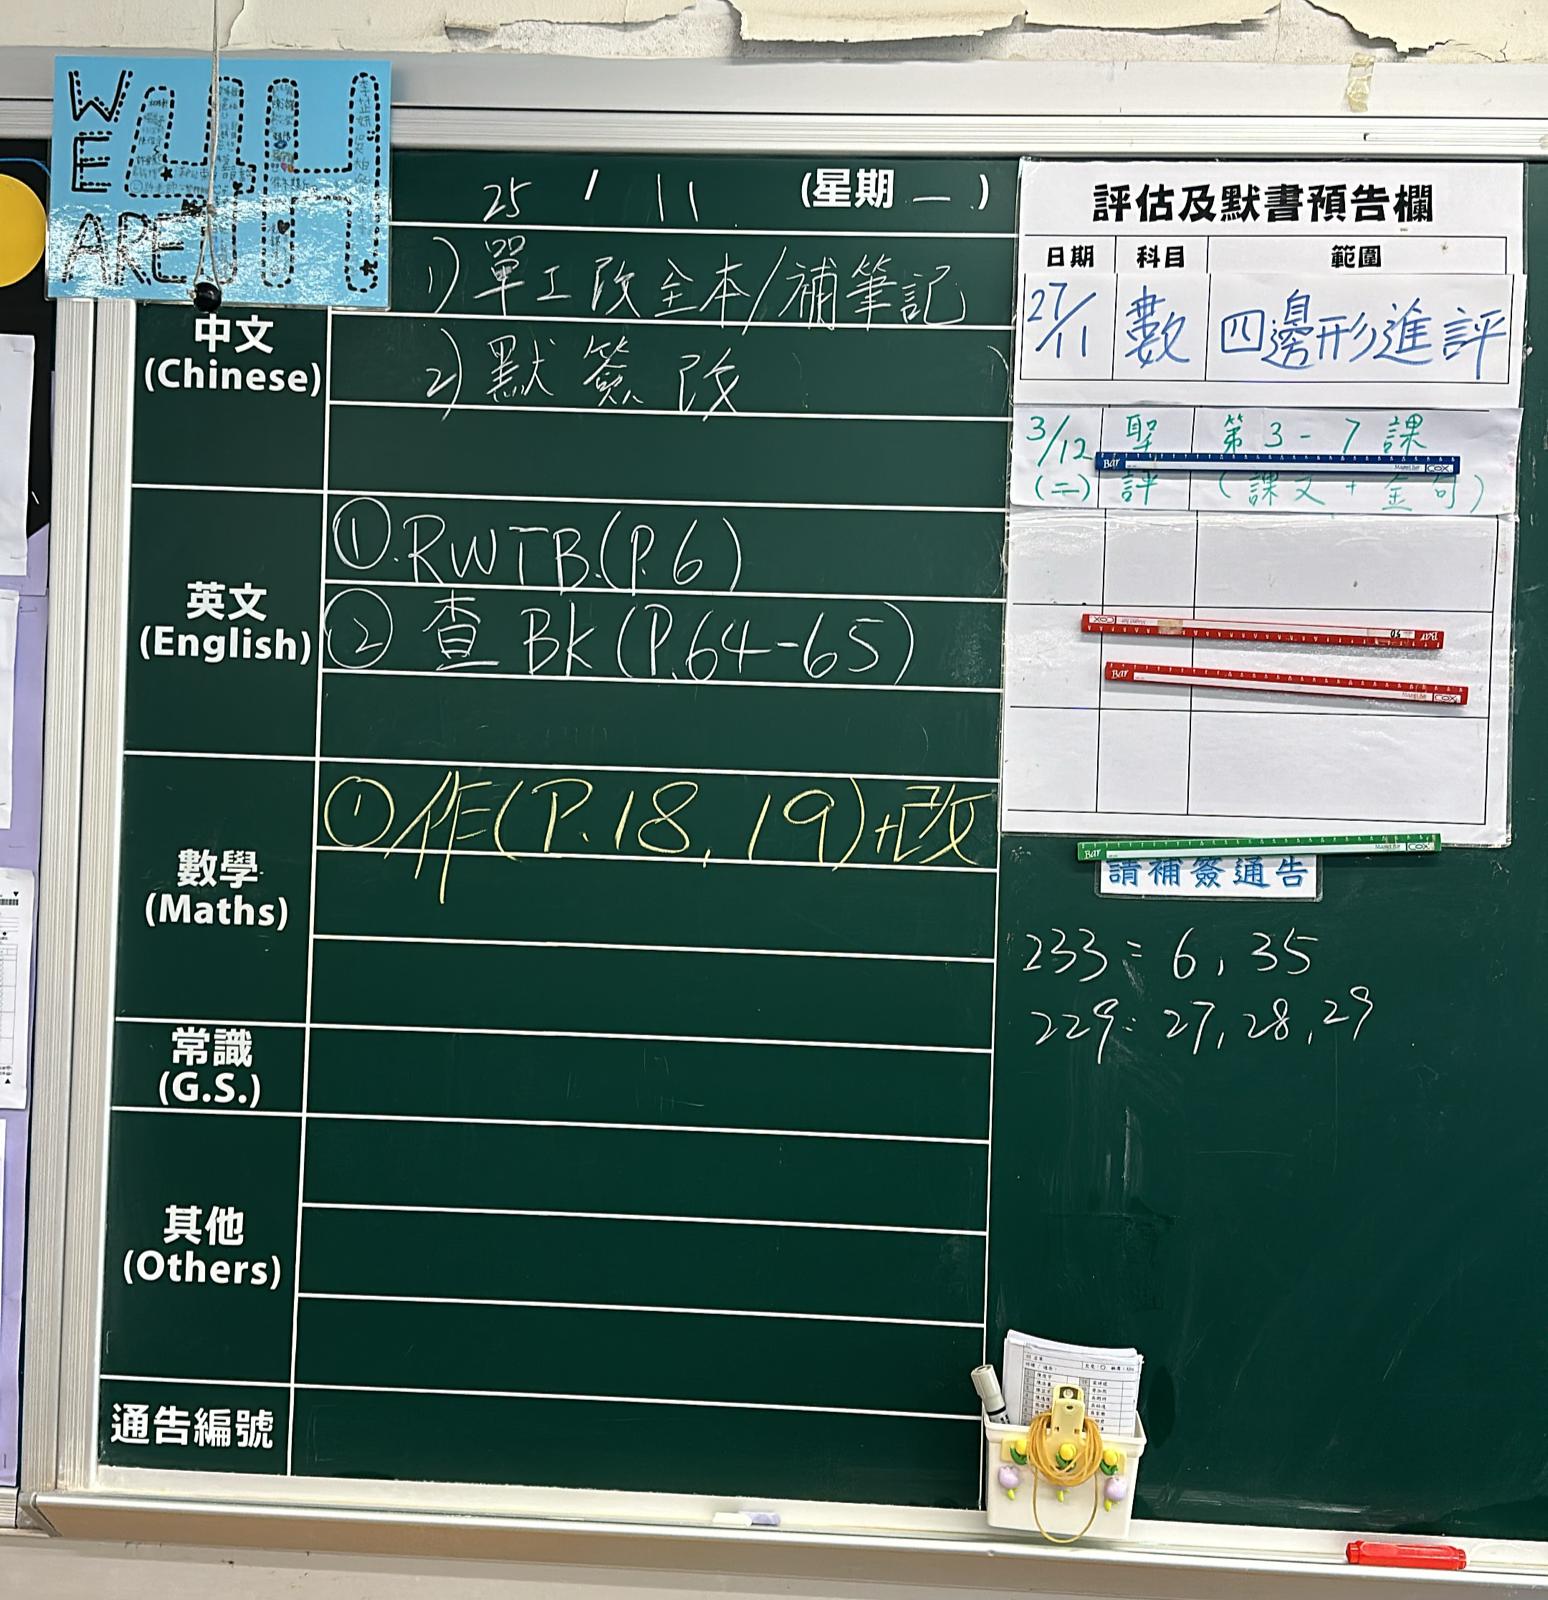 WE ARE 4H
25 / 11 (星期一)
中文
(Chinese)
1) 單工改全本/補筆記
2) 默簽改
英文
(English)
① RWTB.(P.6)
② 查 BK (P.64-65)
數學
(Maths)
① 作(P.18, 19)+改
常識
(G.S.)
其他
(Others)
通告編號
評估及默書預告欄
日期 科目 範圍
27/11 數 四邊形進評
3/12 聖 第3-7課
(二) 評 (課文+金句)
Bar COX
COX Bar
Bar COX
Bar COX
請補簽通告
233: 6, 35
229: 27, 28, 29